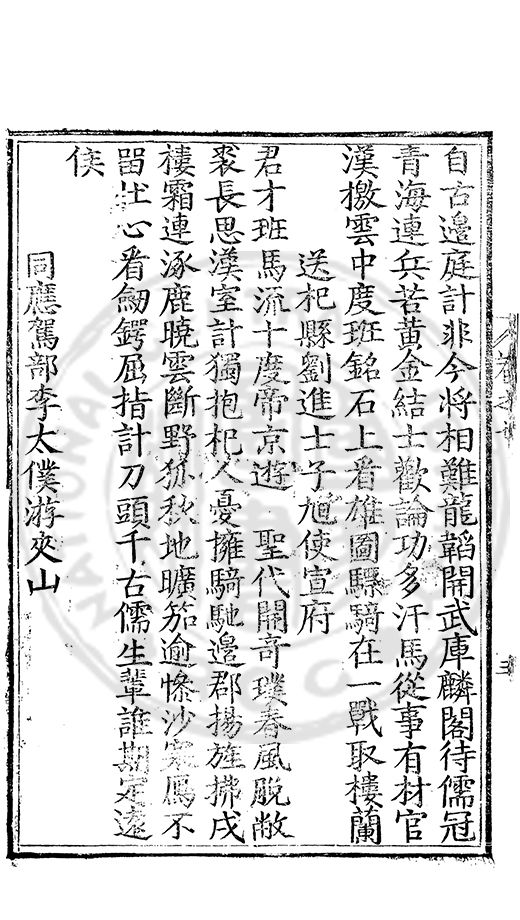 自古邊庭計非今將相難龍韜開武庫麟閣待儒冠
青海連兵苦黃金結士歡論功多汗馬從事有材官
漢檄雲中度班銘石上看雄圖驃騎在一戰取樓蘭
送杞縣劉進士子旭使宣府
君才班馬流十度帝京遊 聖代開奇璞春風脫敝
裘長思漢室計獨抱杞人憂擁騎馳邊郡揚旌拂戍
樓霜連涿鹿曉雲斷野狐秋地曠笳逾慘沙寒鴈不
留壮心看劒鍔屈指計刀頭千古儒生輩誰期定遠
侯
同應駕部李太僕游夾山